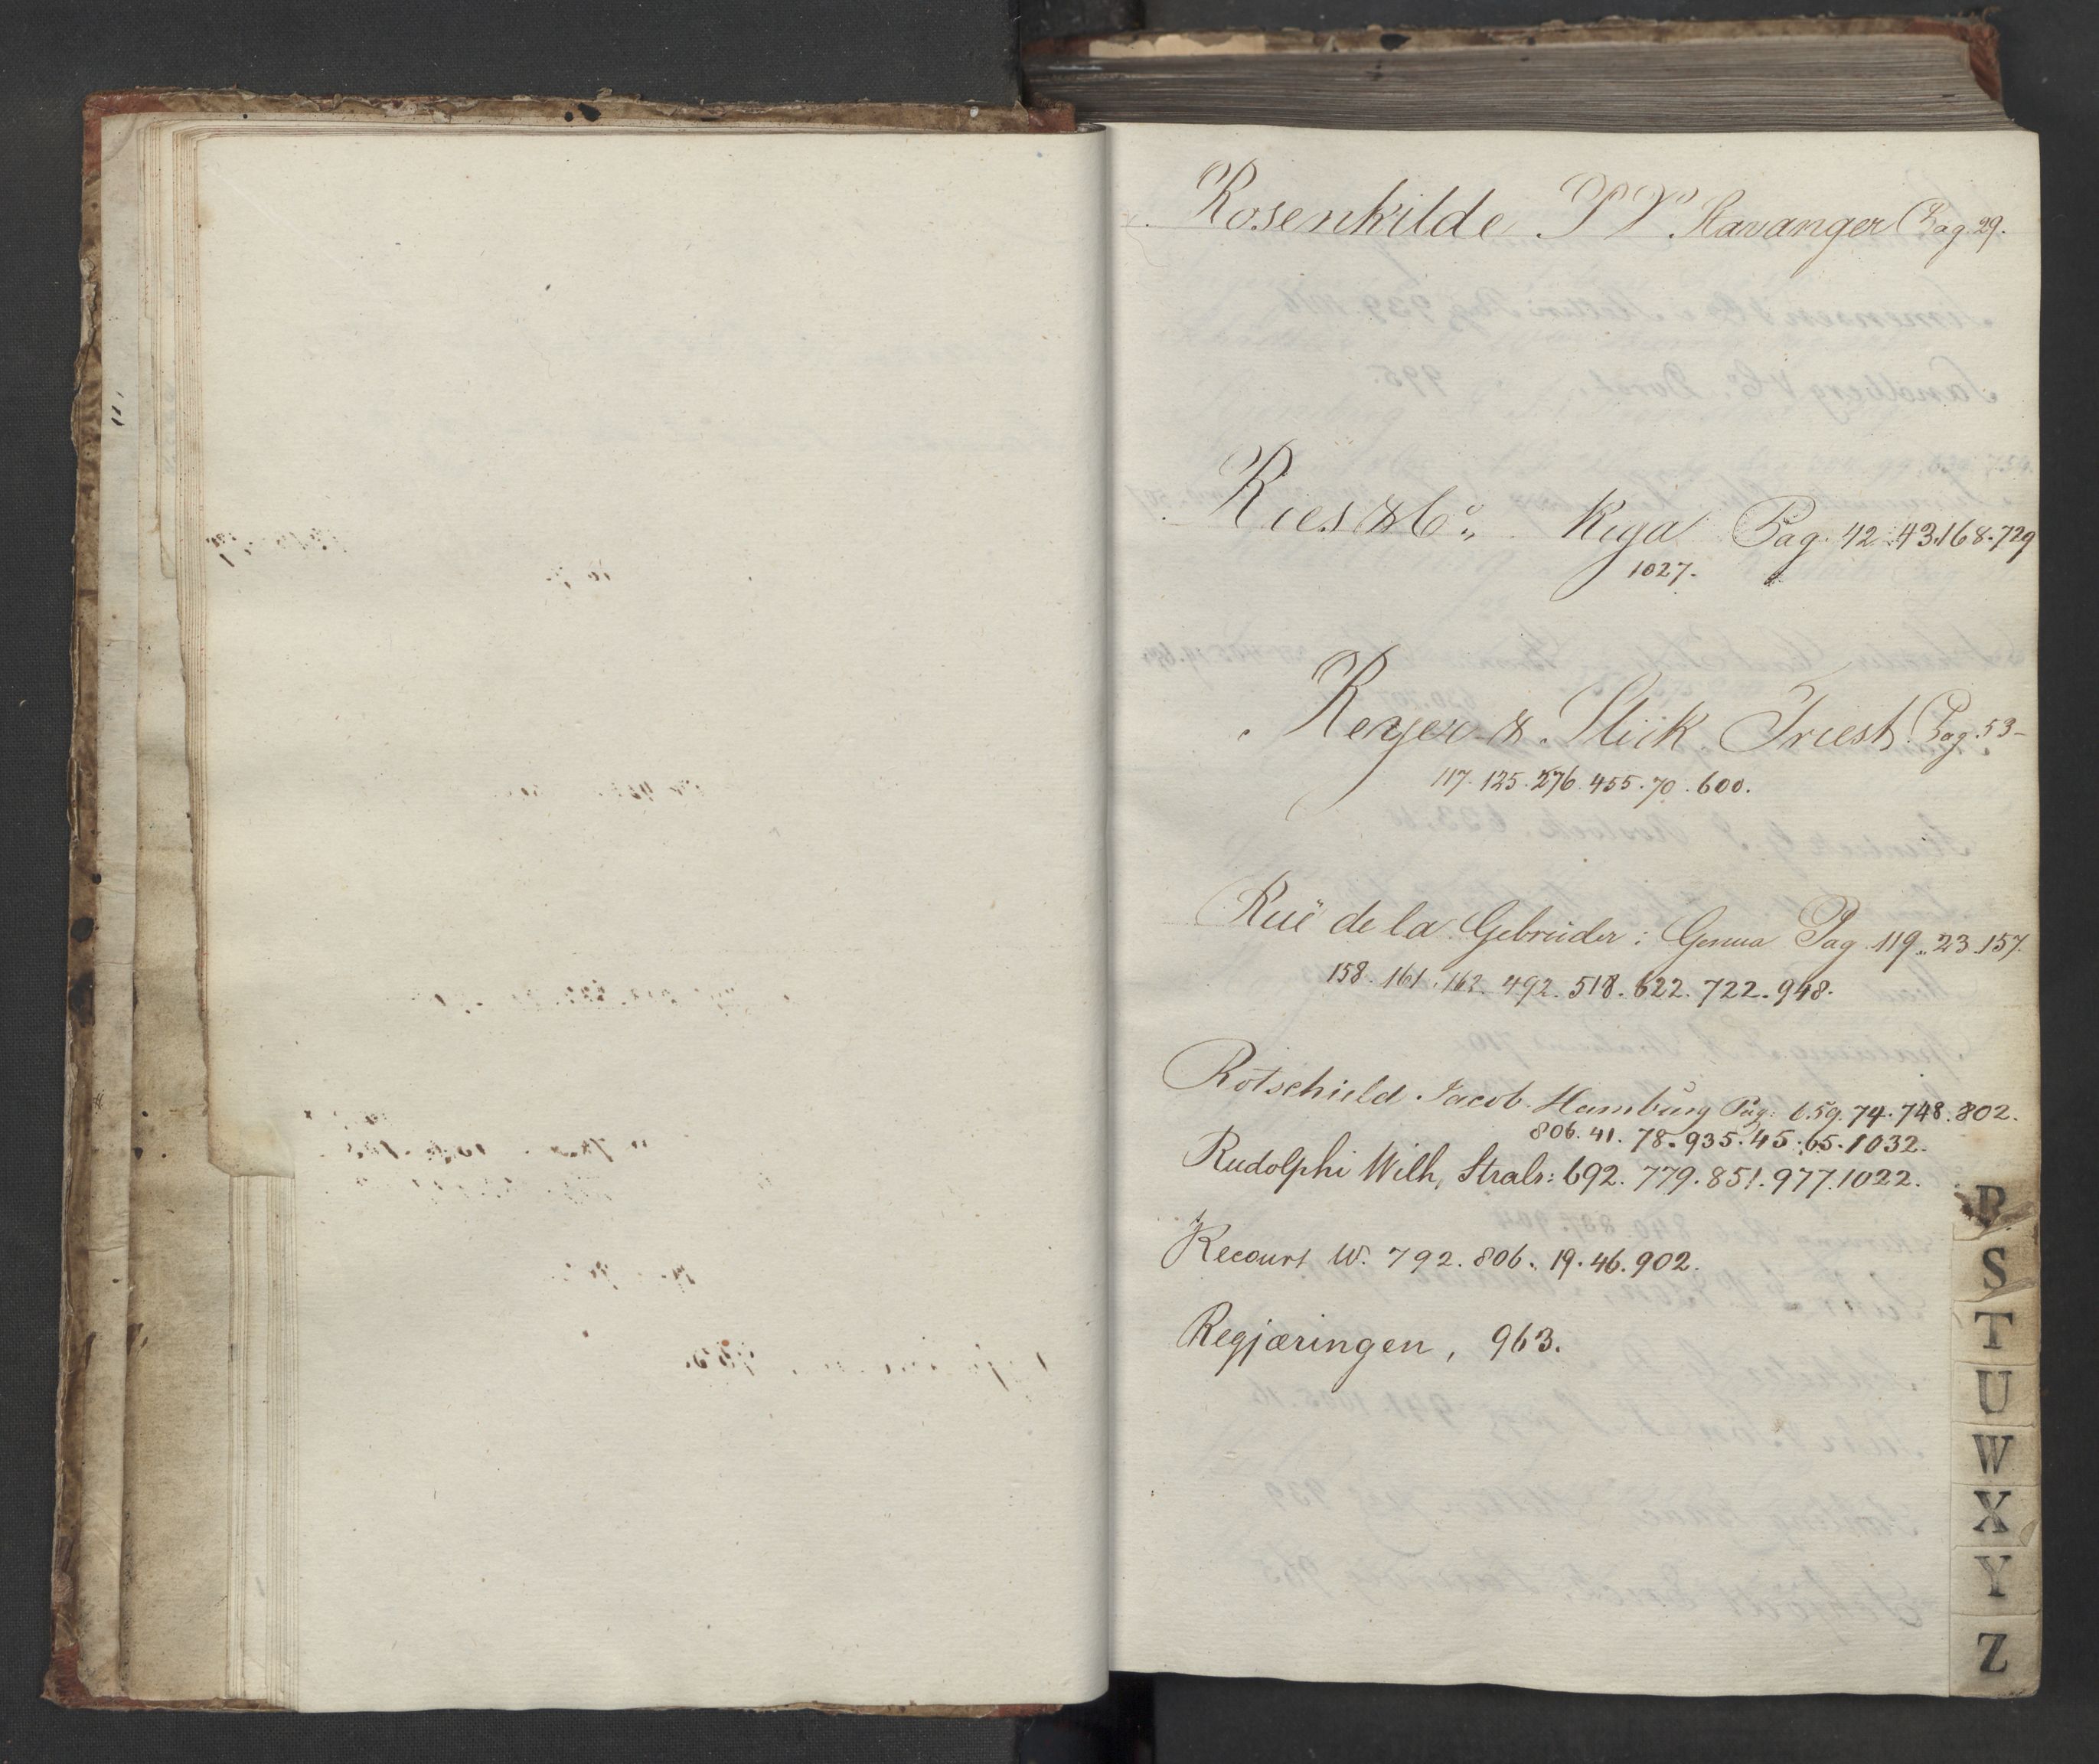 Rosenkilde P V Stavanger Pag 29.
Ries & Co Riga Pag. 42. 43. 168. 729
1027.
Reyer & Slick Triest Pag. 53-
117. 125. 276. 455. 70. 600.
Rué de la Gebrüder: Genua Pag. 119. 23. 157.
158. 161. 162. 492. 518. 622. 722. 948.
Rotschield Jacob. Hamburg Pag: 659. 74. 748. 802.
806. 41. 78. 935. 45. 65. 1032.
Rudolphi Wilh, Strals: 692. 779. 851. 977. 1022.
Recourt W. 792. 806. 19. 46. 902.
Regjæringen, 963.
R
S
T
U
W
X
Y
Z